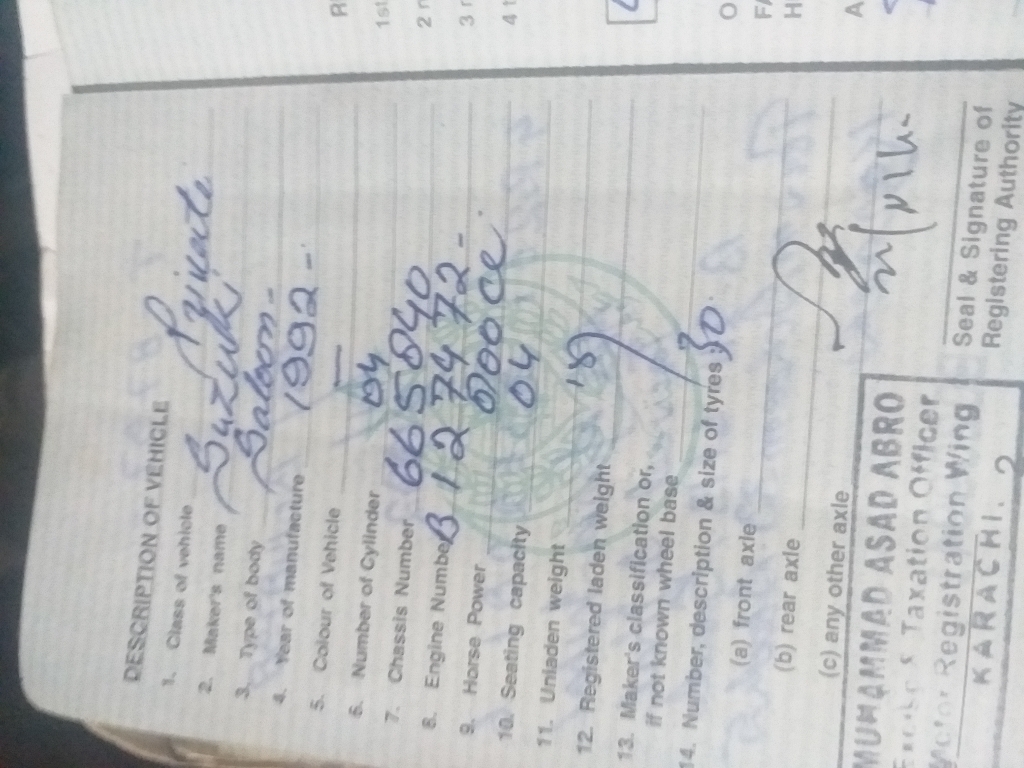 DESCRIPTION OF VEHICLE
1. Class of vehicle Private
2. Maker's name Suzuki
3. Type of body Saloon -
4. Year of manufacture 1992 -
5. Colour of vehicle —
6. Number of Cylinder 04
7. Chassis Number 665840
8. Engine Number B 127472 -
9. Horse Power 800 cc
10. Seating capacity 04
11. Unladen weight
12. Registered laden weight
13. Maker's classification or,
if not known wheel base
14. Number, description & size of tyres
(a) front axle
(b) rear axle
(c) any other axle
MUHAMMAD ASAD ABRO
Excise & Taxation Officer
Motor Registration Wing
KARACHI.
Seal & Signature of
Registering Authority
1st